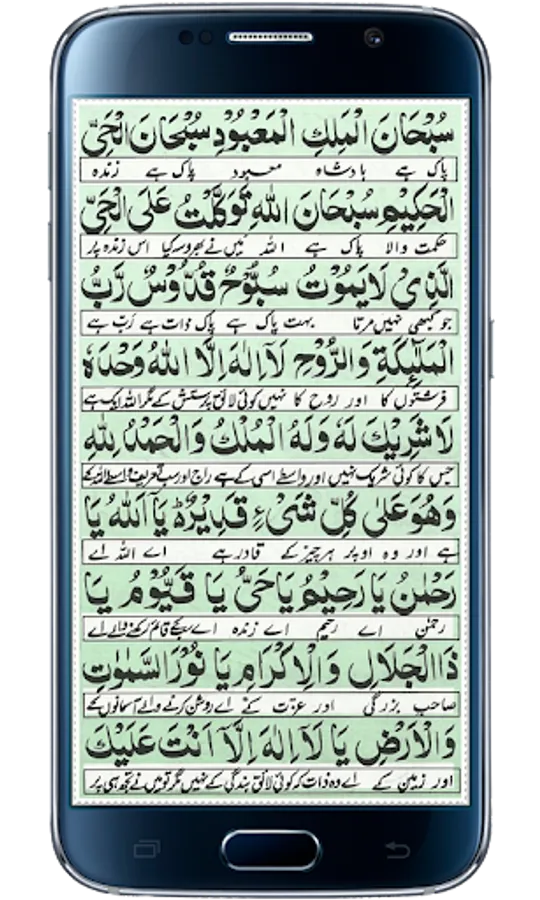 سُبْحَانَ الْمَلِكِ الْمَعْبُوْدِ سُبْحَانَ الْحَیِّ
پاک ہے بادشاہ معبود پاک ہے زندہ
الْحَکِیْمِ سُبْحَانَ اللهِ تَوَکَّلْتُ عَلَی الْحَیِّ
حکمت والا پاک ہے اللہ میں نے بھروسہ کیا اس زندہ پر
الَّذِیْ لَا یَمُوْتُ سُبُّوْحٌ قُدُّوْسٌ رَّبُّ
جو کبھی نہیں مرتا بہت پاک ہے پاک ذات ہے رب ہے
الْمَلٰٓئِکَةِ وَالرُّوْحِ لَآ اِلٰهَ اِلَّا اللهُ وَحْدَهٗ
فرشتوں کا اور روح کا نہیں کوئی لائق پرستش کے مگر اللہ ایک ہے
لَا شَرِیْكَ لَهٗ وَلَهُ الْمُلْكُ وَالْحَمْدُ لِلّٰهِ
جس کا کوئی شریک نہیں اور واسطے اسی کے ہے راج اور سب تعریف واسطے اللہ کے
وَهُوَ عَلٰی کُلِّ شَیْءٍ قَدِیْرٌ یَا اَللهُ یَا
ہے اور وہ اوپر ہر چیز کے قادر ہے اے اللہ اے
رَحْمٰنُ یَا رَحِیْمُ یَا حَیُّ یَا قَیُّوْمُ یَا
رحمٰن اے رحیم اے زندہ اے سب کے قائم رکھنے والے اے
ذَا الْجَلَالِ وَالْاِکْرَامِ یَا نُوْرَ السَّمٰوٰتِ
صاحب بزرگی اور عزت کے اے روشن کرنے والے آسمانوں کے
وَالْاَرْضِ یَا لَآ اِلٰهَ اِلَّآ اَنْتَ عَلَیْكَ
اور زمین کے اے وہ ذات کہ کوئی لائق بندگی کے نہیں مگر تو میں نے تجھ ہی پر